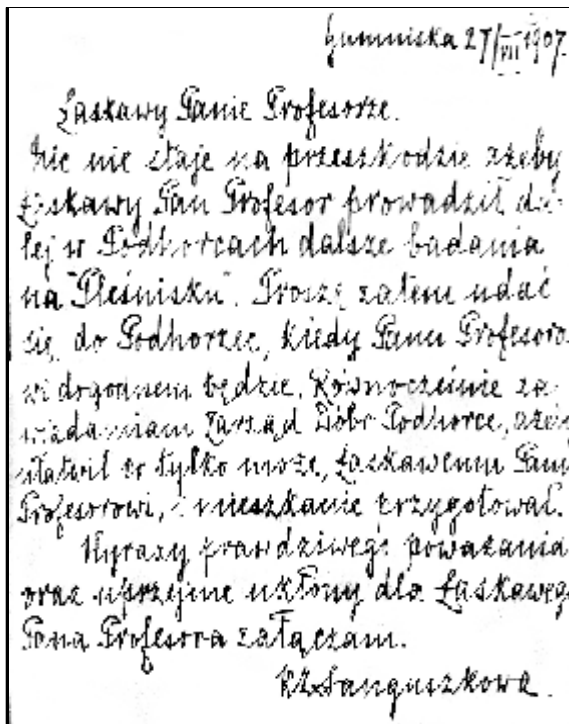 Gumniska 27/VII 1907.
Łaskawy Panie Profesorze.
Nic nie staje na przeszkodzie ażeby
Łaskawy Pan Profesor prowadził da-
lej w Podhorcach dalsze badania
na "Pleśnisku". Proszę zatem udać
się do Podhorzec, kiedy Panu Profesoro-
wi dogodnem będzie. Równocześnie za-
wiadamiam Zarząd Dóbr Podhorce, ażeby
ułatwił co tylko może, Łaskawemu Panu
Profesorowi, i mieszkanie przygotował.
Wyrazy prawdziwego poważania
oraz uprzejme ukłony dla Łaskawego
Pana Profesora załączam.
Sanguszkowa.